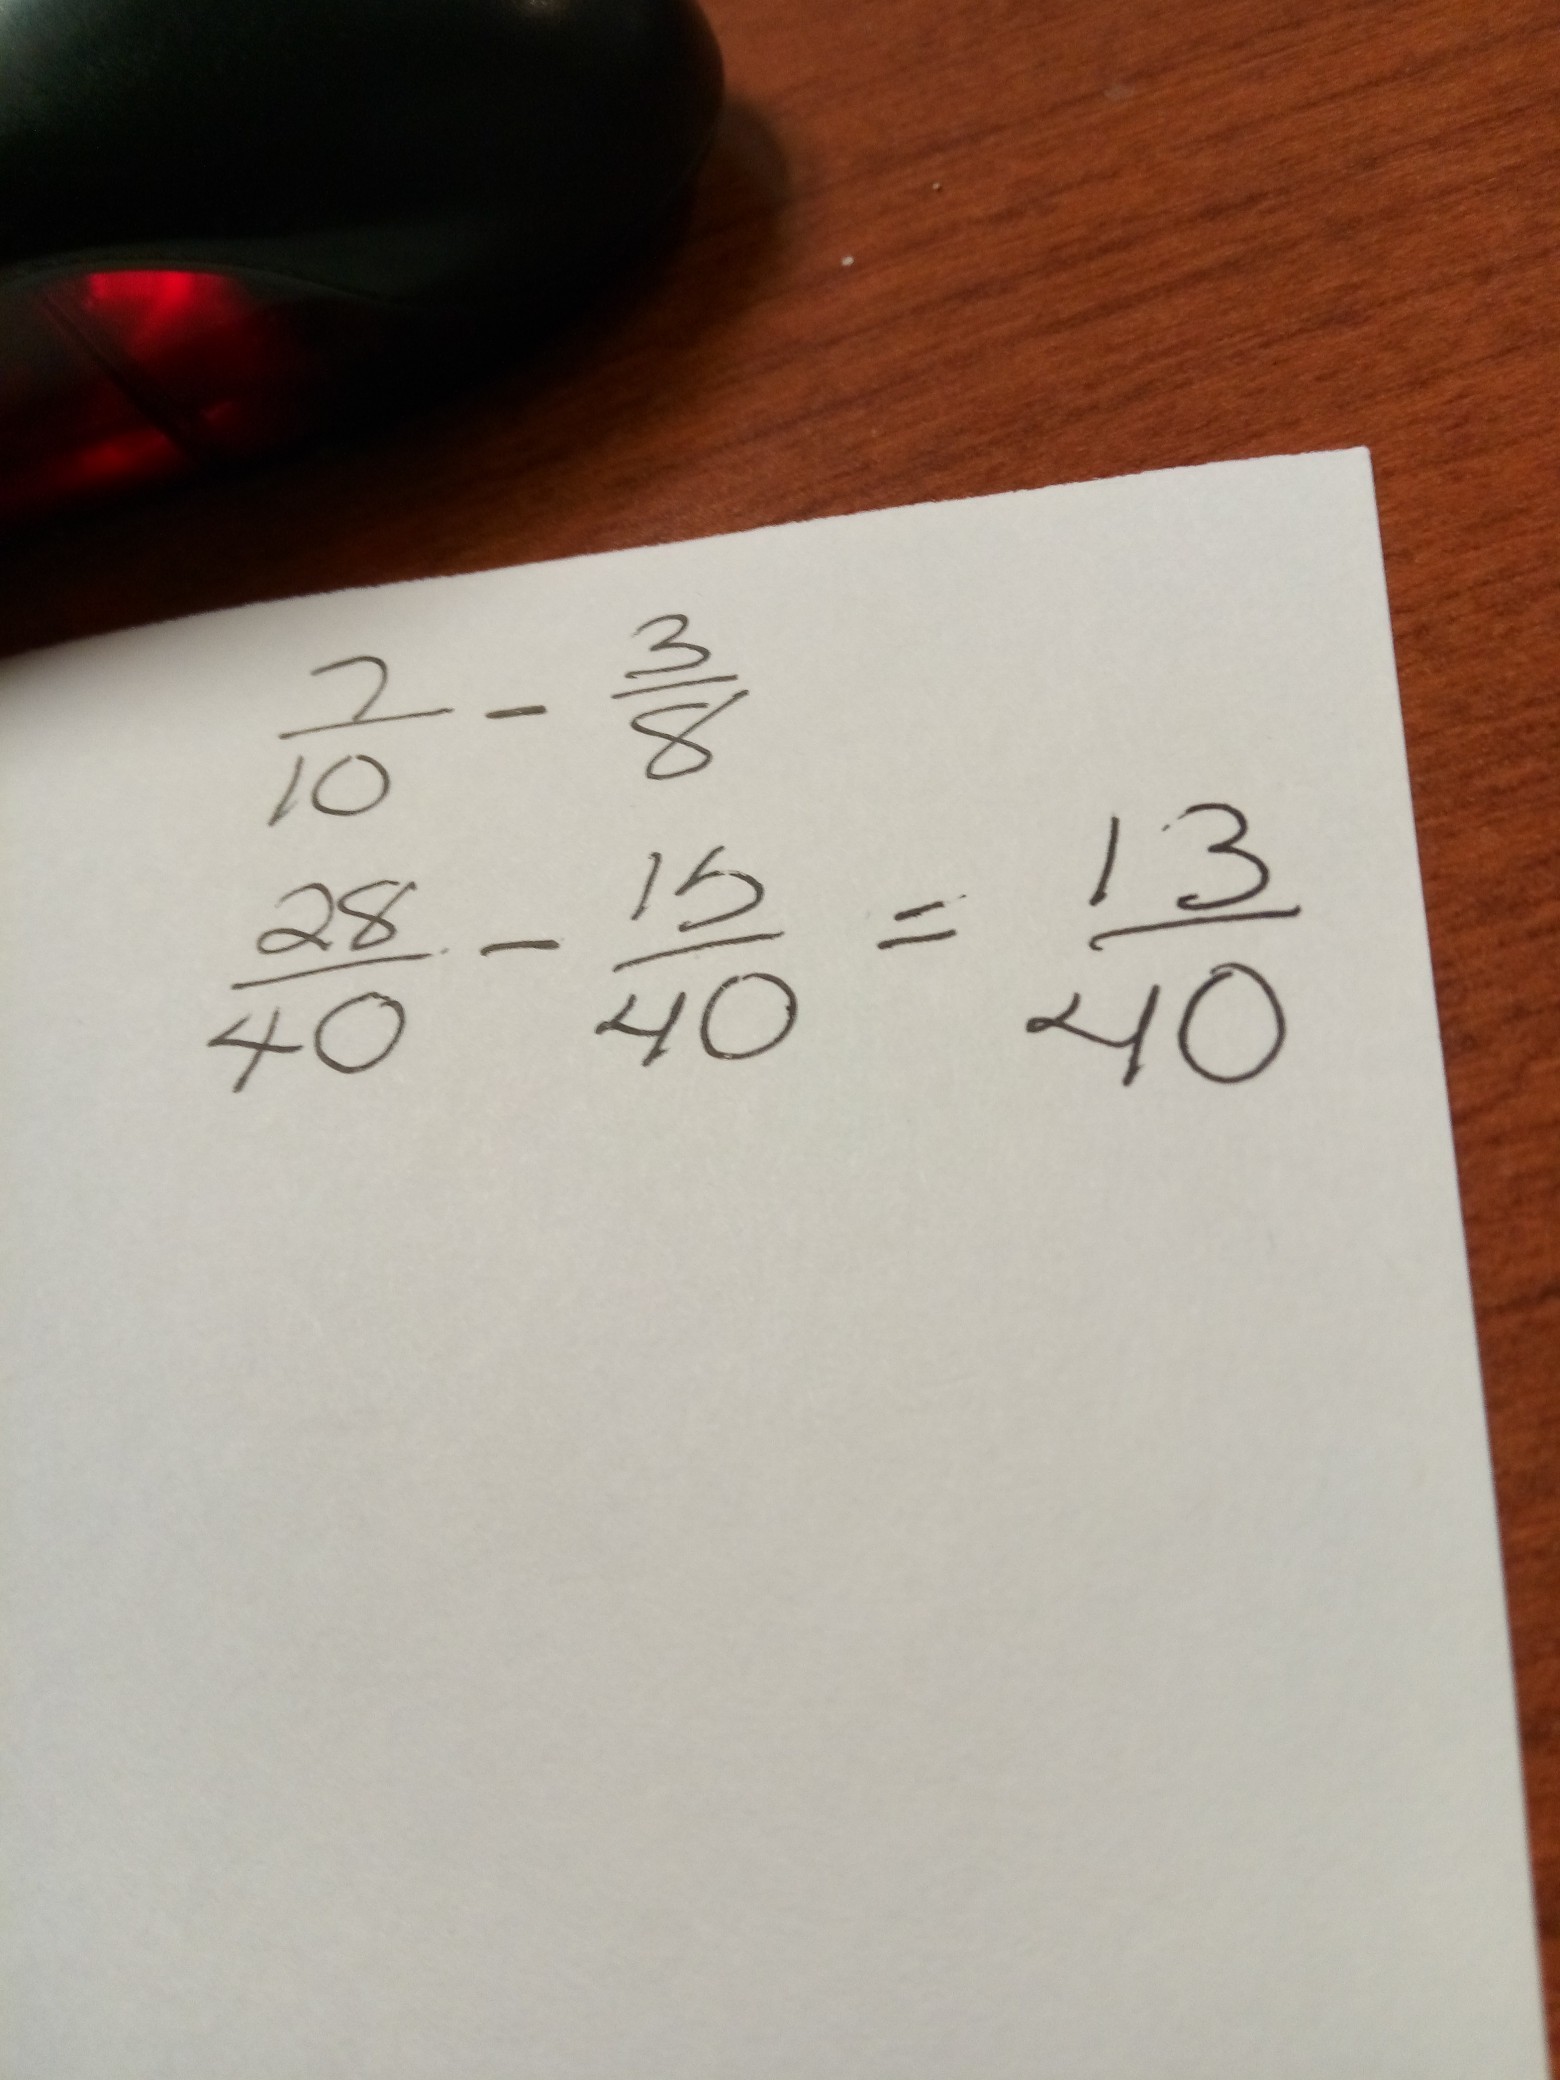 7/10 - 3/8
28/40 - 15/40 = 13/40